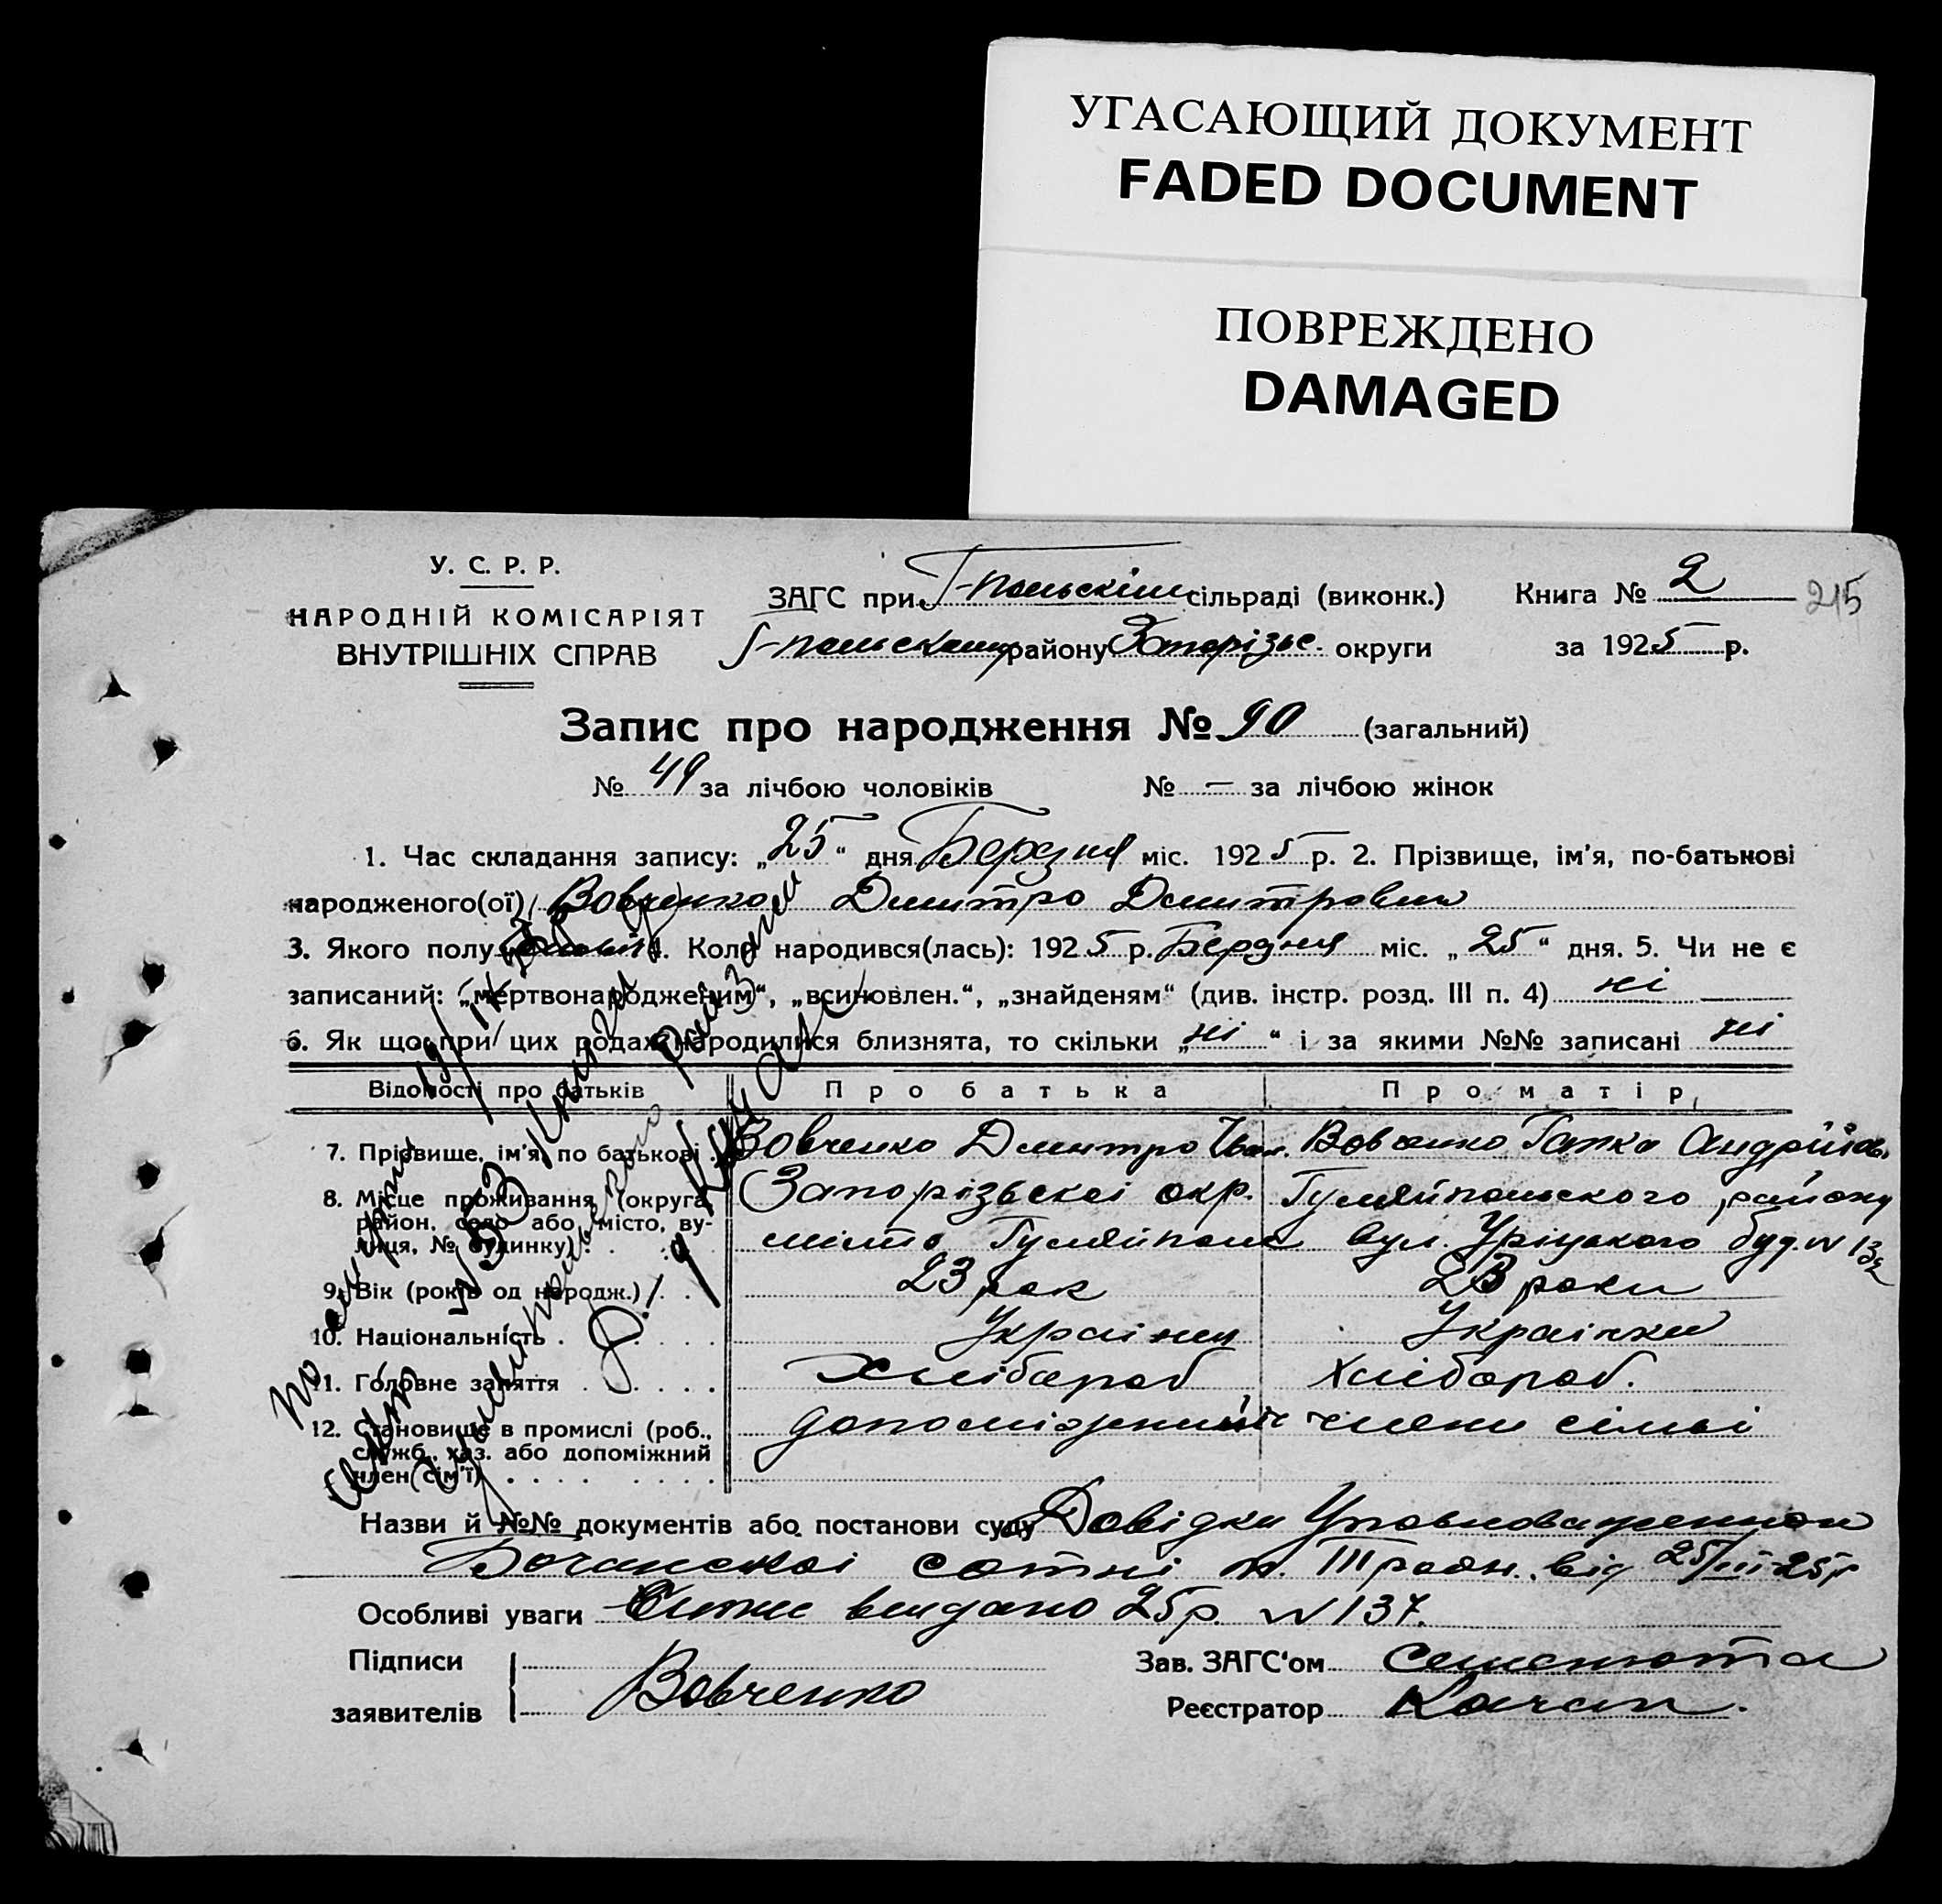 УГАСАЮЩИЙ ДОКУМЕНТ
FADED DOCUMENT
ПОВРЕЖДЕНО
DAMAGED
У. С. Р. Р.
НАРОДНІЙ КОМІСАРІЯТ
ВНУТРІШНІХ СПРАВ
ЗАГС при Г-польскім сільраді (виконк.)
Г-польскому району Запорізьс. округи
Книга № 2
215
за 1925 р.
Запис про народження № 90 (загальний)
№ 49 за лічбою чоловіків № — за лічбою жінок
1. Час складання запису: „25“ дня Березня міс. 1925 р. 2. Прізвище, ім'я, по-батькові
народженого(ої) Вовченко Дмитро Дмитрович
3. Якого полу 4. Коли народився(лась): 1925 р. Березня міс. „25“ дня. 5. Чи не є
записаний: „мертвонародженим“, „всиновлен.“, „знайденям“ (див. інстр. розд. III п. 4) ні
6. Як що при цих родах народилися близнята, то скільки „ні“ і за якими №№ записані ні
Відомості про батьків Про батька Про матір
7. Прізвище, ім'я, по батькові Вовченко Дмитро Іван. Вовченко Гапка Андрійов.
8. Місце проживання (округа, район, село або місто, вулиця, № будинку) Запорізьскоі окр. Гуляйпольского району
місто Гуляйполе вул. Уріцького буд. №
9. Вік (років од народж.) 23 рок 23 роки
10. Національність Украінец Украінка
11. Головне заняття Хлібороб Хлібороб.
12. Становище в промислі (роб., служб., хаз. або допоміжний член сім'ї) допоміжниі члени сімьі
Назви й №№ документів або постанови суду Довідки Уповноваженного
Бочанскоі сотні по III район. від 25/III-25р
Особливі уваги видано 25р. № 137.
Підписи
заявителів Вовченко
Зав. ЗАГС'ом Семенюта
Реєстратор Качан.